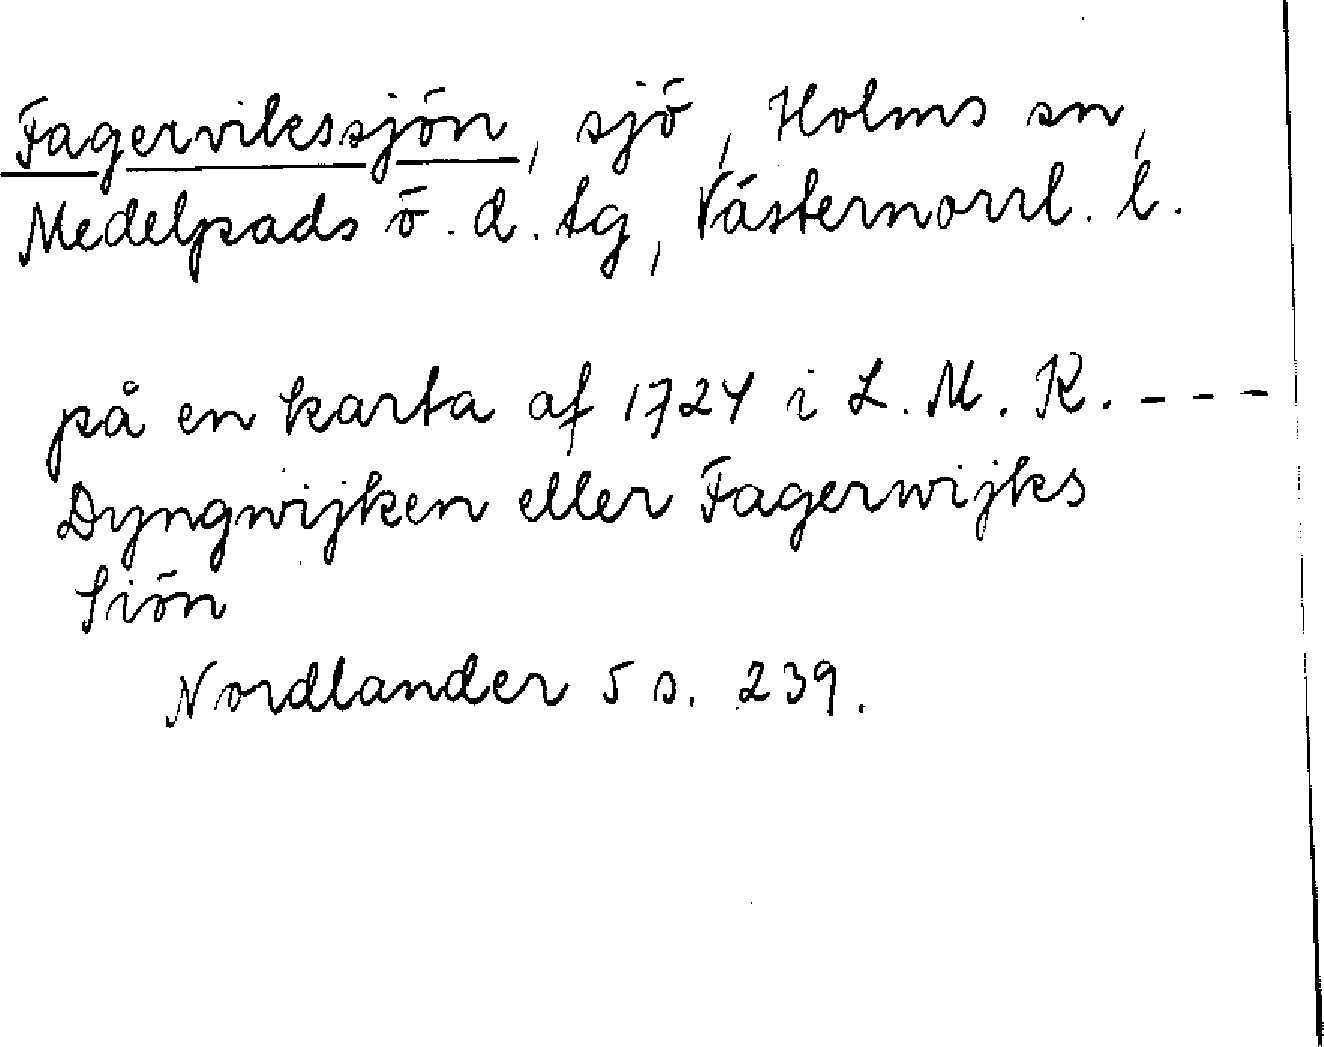 Fagervikssjön, sjö, Holms sn,
Medelpads ö. d. tg, Västernorrl. l.
på en karta af 1724 i L. M. K. - - -
Dyngwijken eller Fagerwijks
Siön
Nordlander 5 s. 239.